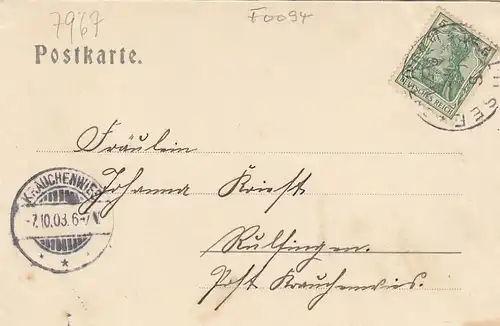 7967
F0094
Postkarte.
DEUTSCHES REICH
Fräulein
Johanna Kriest
KRAUCHENWIES
-7.10.03. 6-7
Rulfingen.
Post Krauchenwies.